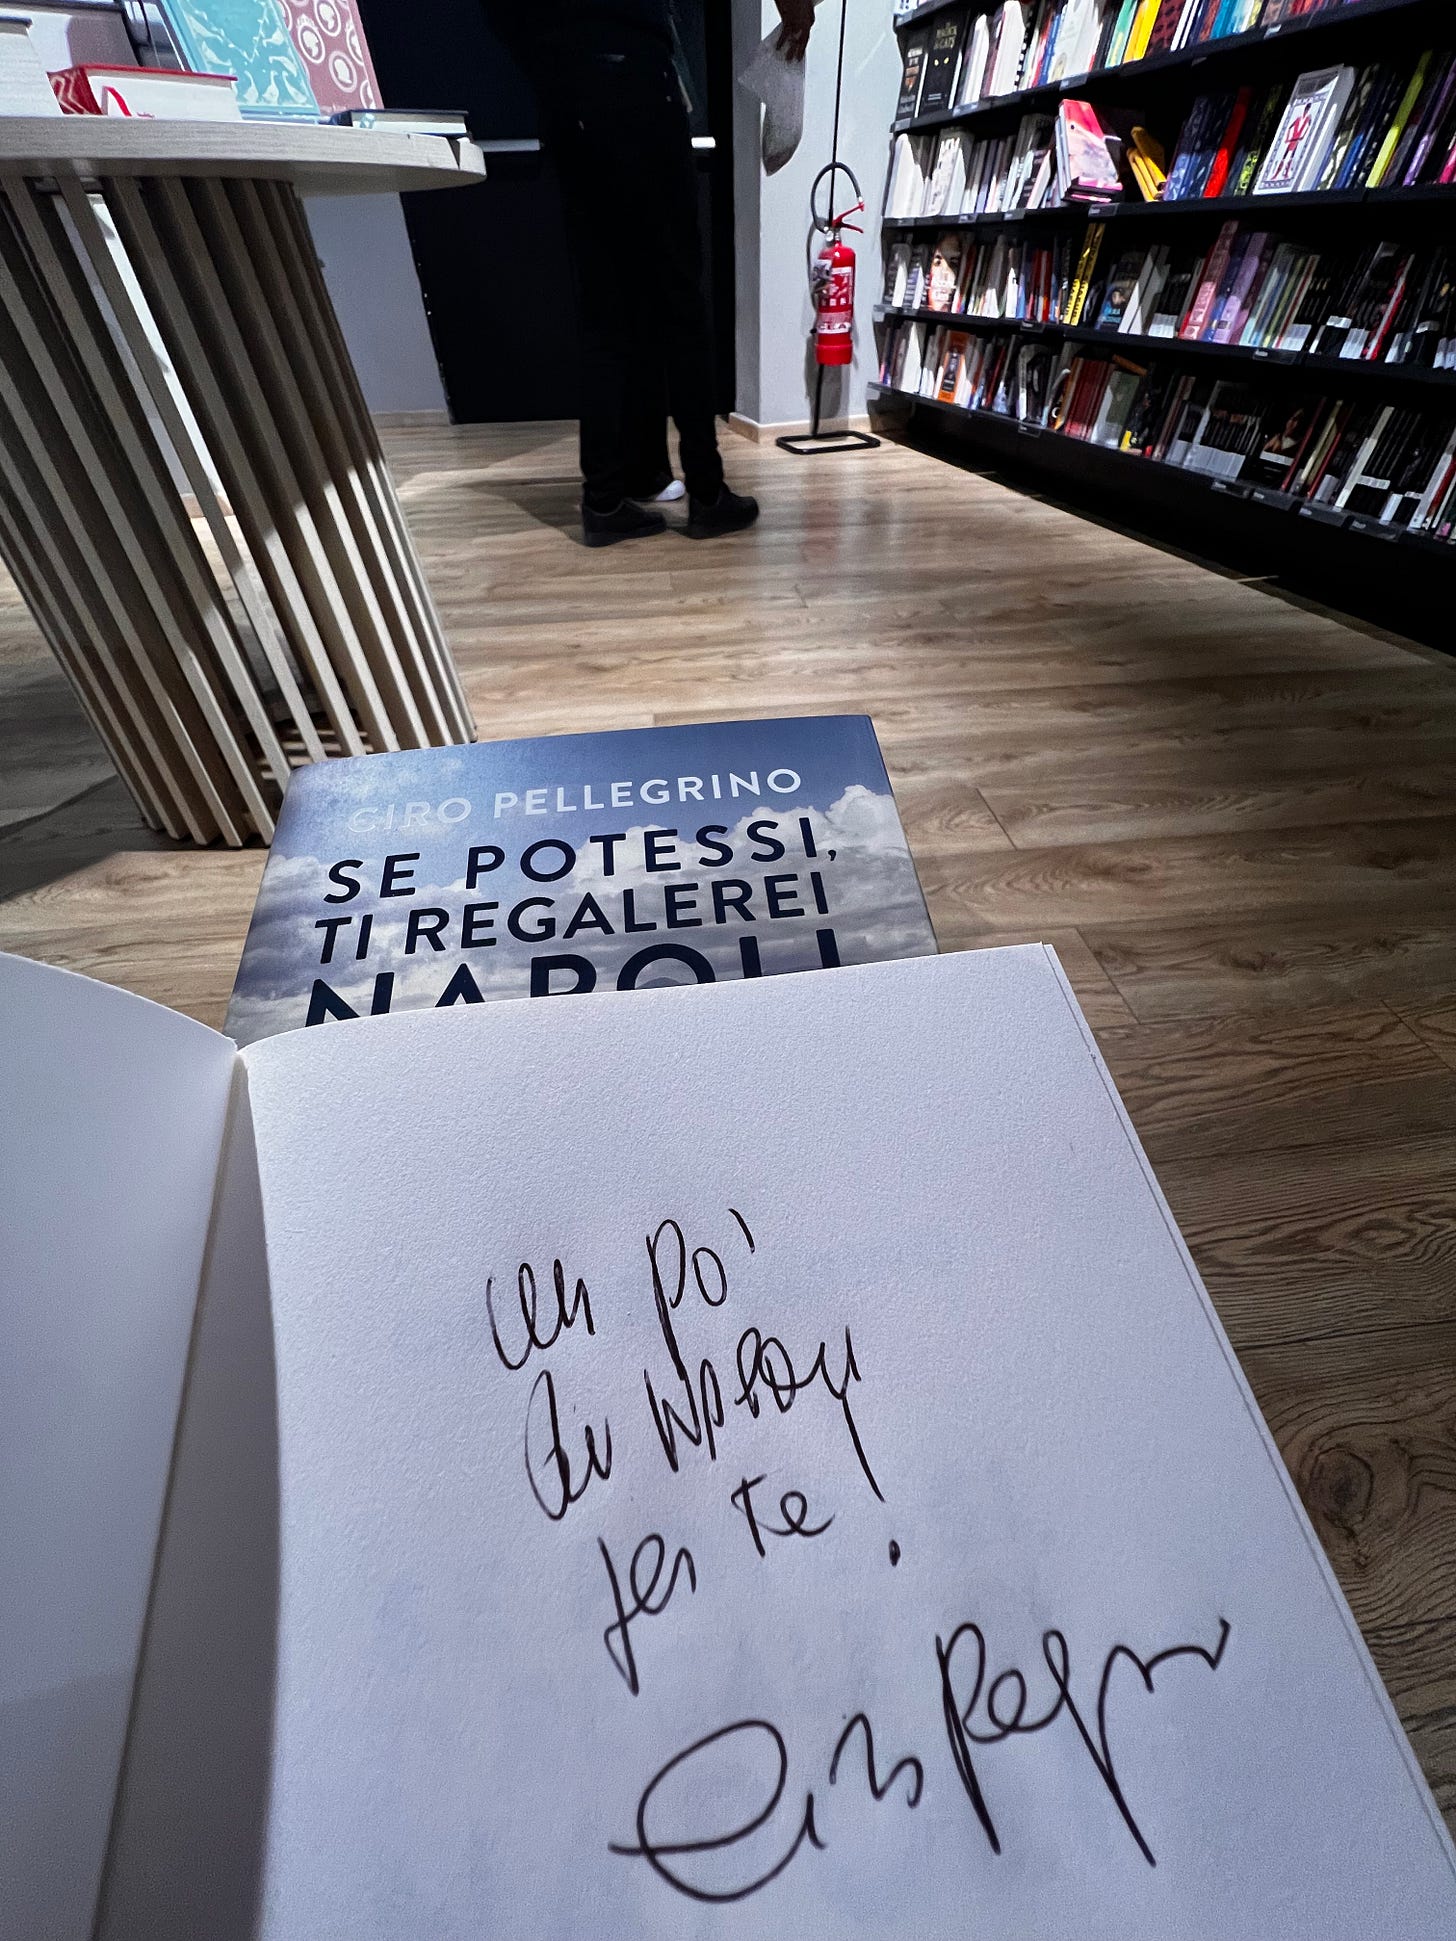 CIRO PELLEGRINO
SE POTESSI,
TI REGALEREI
NAPOLI
Un po'
di Napoli
per te!
Ciro Pellegrino